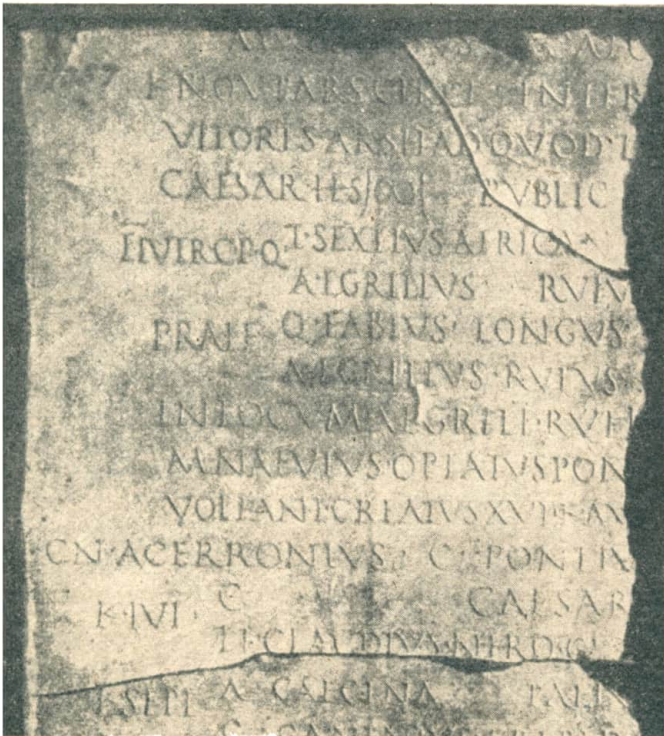 K NOV PARS CIRCI INTER
VITORES ARSIT AD QVOD T
CAESAR HS PVBLIC
IIVIR C P Q T·SEXTIVS AFRICAN
A·EGRILIVS RVFV
PRAEF Q·FABIVS LONGVS
A·EGRILIVS·RVFVS
IN LOCVM A·EGRILI·RVFI
M·NAEVIVS·OPTATVS PON
VOLKANI CREATVS XVII K AV
CN·ACERRONIVS C·PONTIV
K·IVL C CAESAR
TI·CLAVDIVS·NERO·G
K SEPT A CAECINA PAET